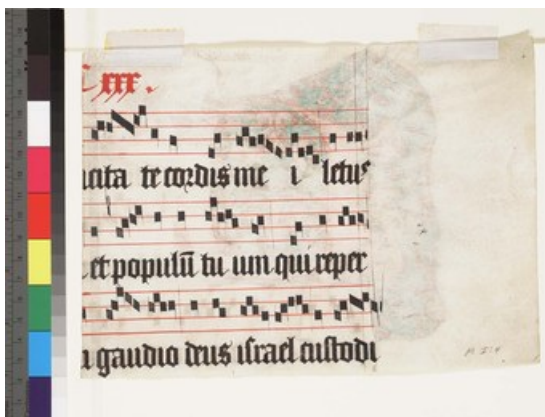 C xxx.
icita te cordis me i letus
et populū tu um qui reper
gaudio deus israel custodi